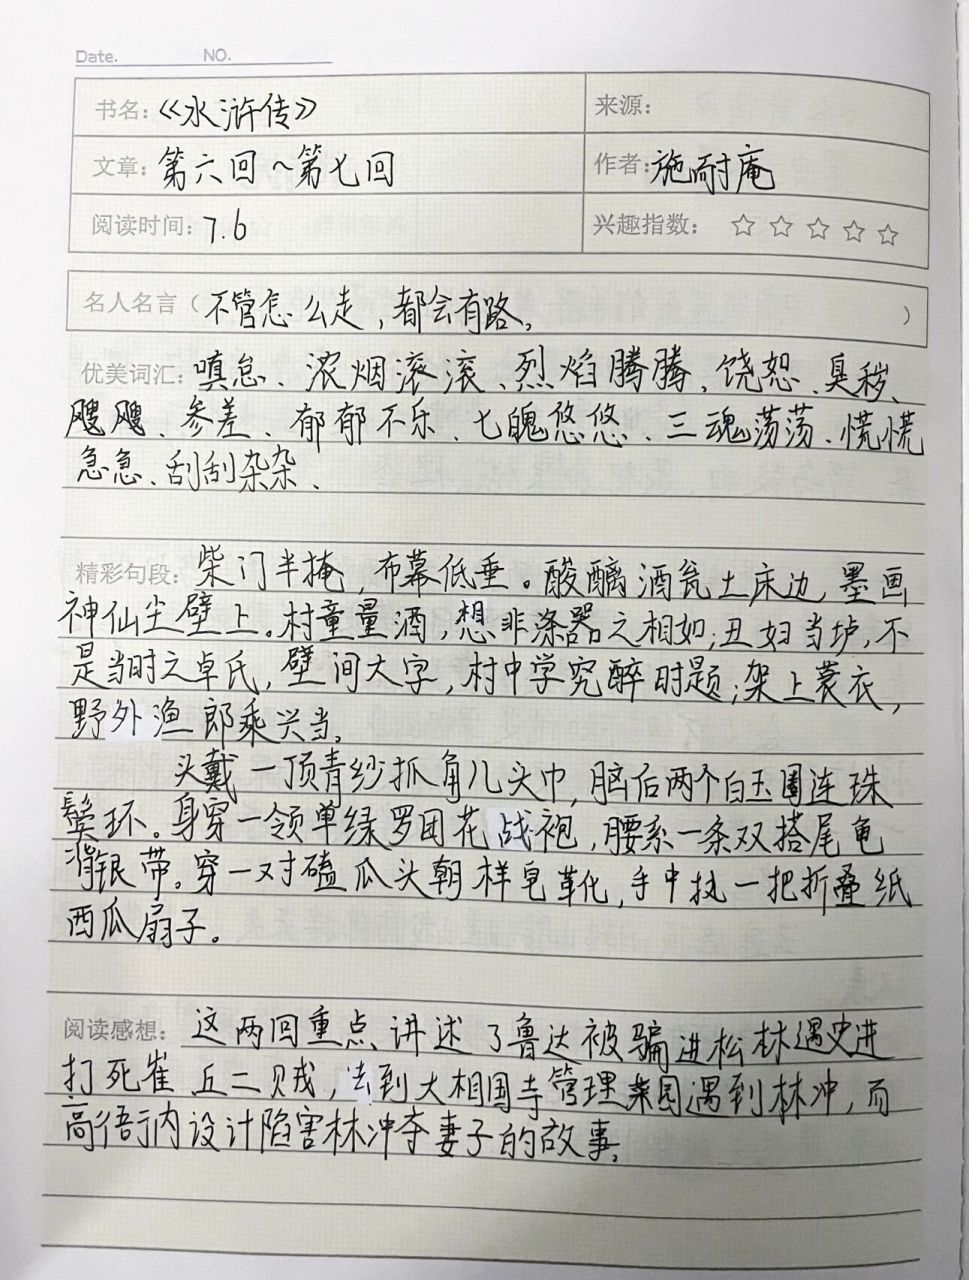 Date. NO.
书名：《水浒传》 来源：
文章：第六回～第七回 作者：施耐庵
阅读时间：7.6 兴趣指数：☆☆☆☆☆
名人名言（不管怎么走，都会有路。）
优美词汇：嗔怠、浓烟滚滚、烈焰腾腾、饶恕、臭秽、
飕飕、参差、郁郁不乐、七魄悠悠、三魂荡荡、慌慌
急急、刮刮杂杂、
精彩句段：柴门半掩，布幕低垂。酸醨酒瓮土床边，墨画
神仙尘壁上。村童量酒，想非涤器之相如；丑妇当垆，不
是当时之卓氏，壁间大字，村中学究醉时题；架上蓑衣，
野外渔郎乘兴当。
头戴一顶青纱抓角儿头巾，脑后两个白玉圈连珠
鬓环。身穿一领单绿罗团花战袍，腰系一条双搭尾龟
背银带。穿一对磕瓜头朝样皂靴，手中执一把折叠纸
西瓜扇子。
阅读感想：这两回重点讲述了鲁达被骗进松林遇史进
打死崔丘二贼，去到大相国寺管理菜园遇到林冲，而
高衙内设计陷害林冲夺妻子的故事。